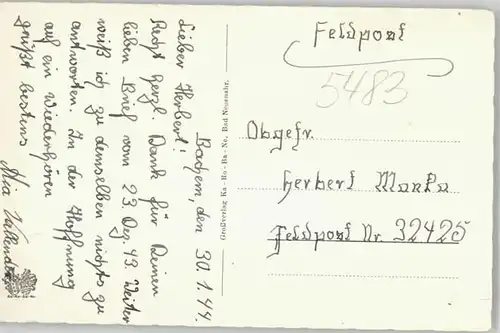 Bachem, den 30.1.44.
Lieber Herbert!
Recht herzl. Dank für Deinen
lieben Brief vom 23. Dez. 43. Weiter
weiß ich zu demselben nichts zu
antworten. In der Hoffnung
auf ein Wiederhören
grüßt bestens
Großverlag Ka-Ba-Ba-Ne, Bad Neuenahr.
Feldpost
5483
Obgefr.
Herbert
Feldpost Nr. 32425